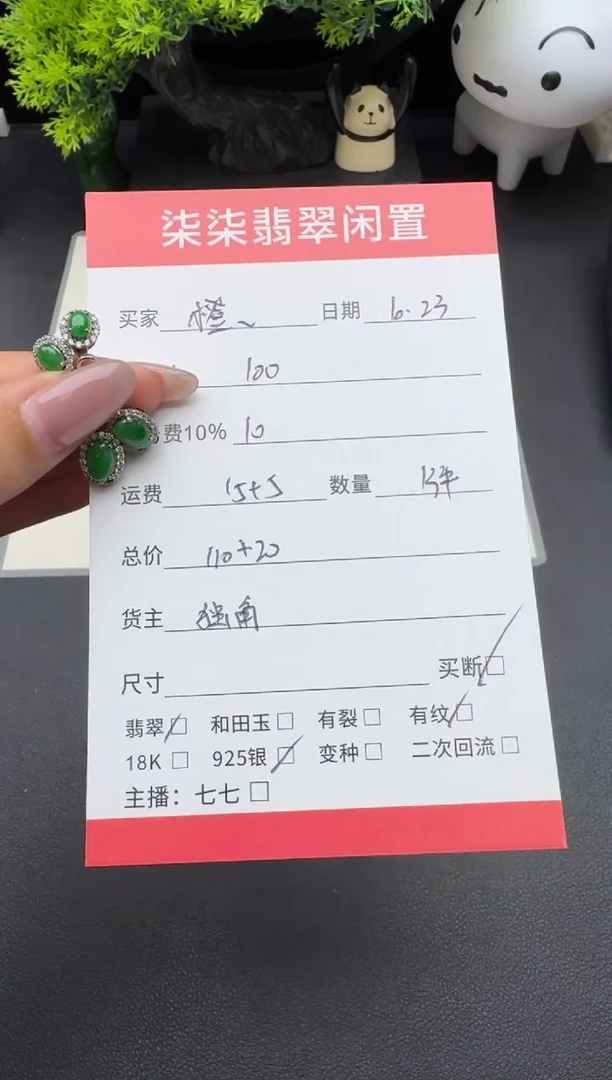 柒柒翡翠闲置
买家 橙 日期 6.23
100
费10% 10
运费 15+5 数量 1件
总价 110+20
货主 独角
尺寸 买断
翡翠 和田玉 有裂 有纹
18K 925银 变种 二次回流
主播：七七